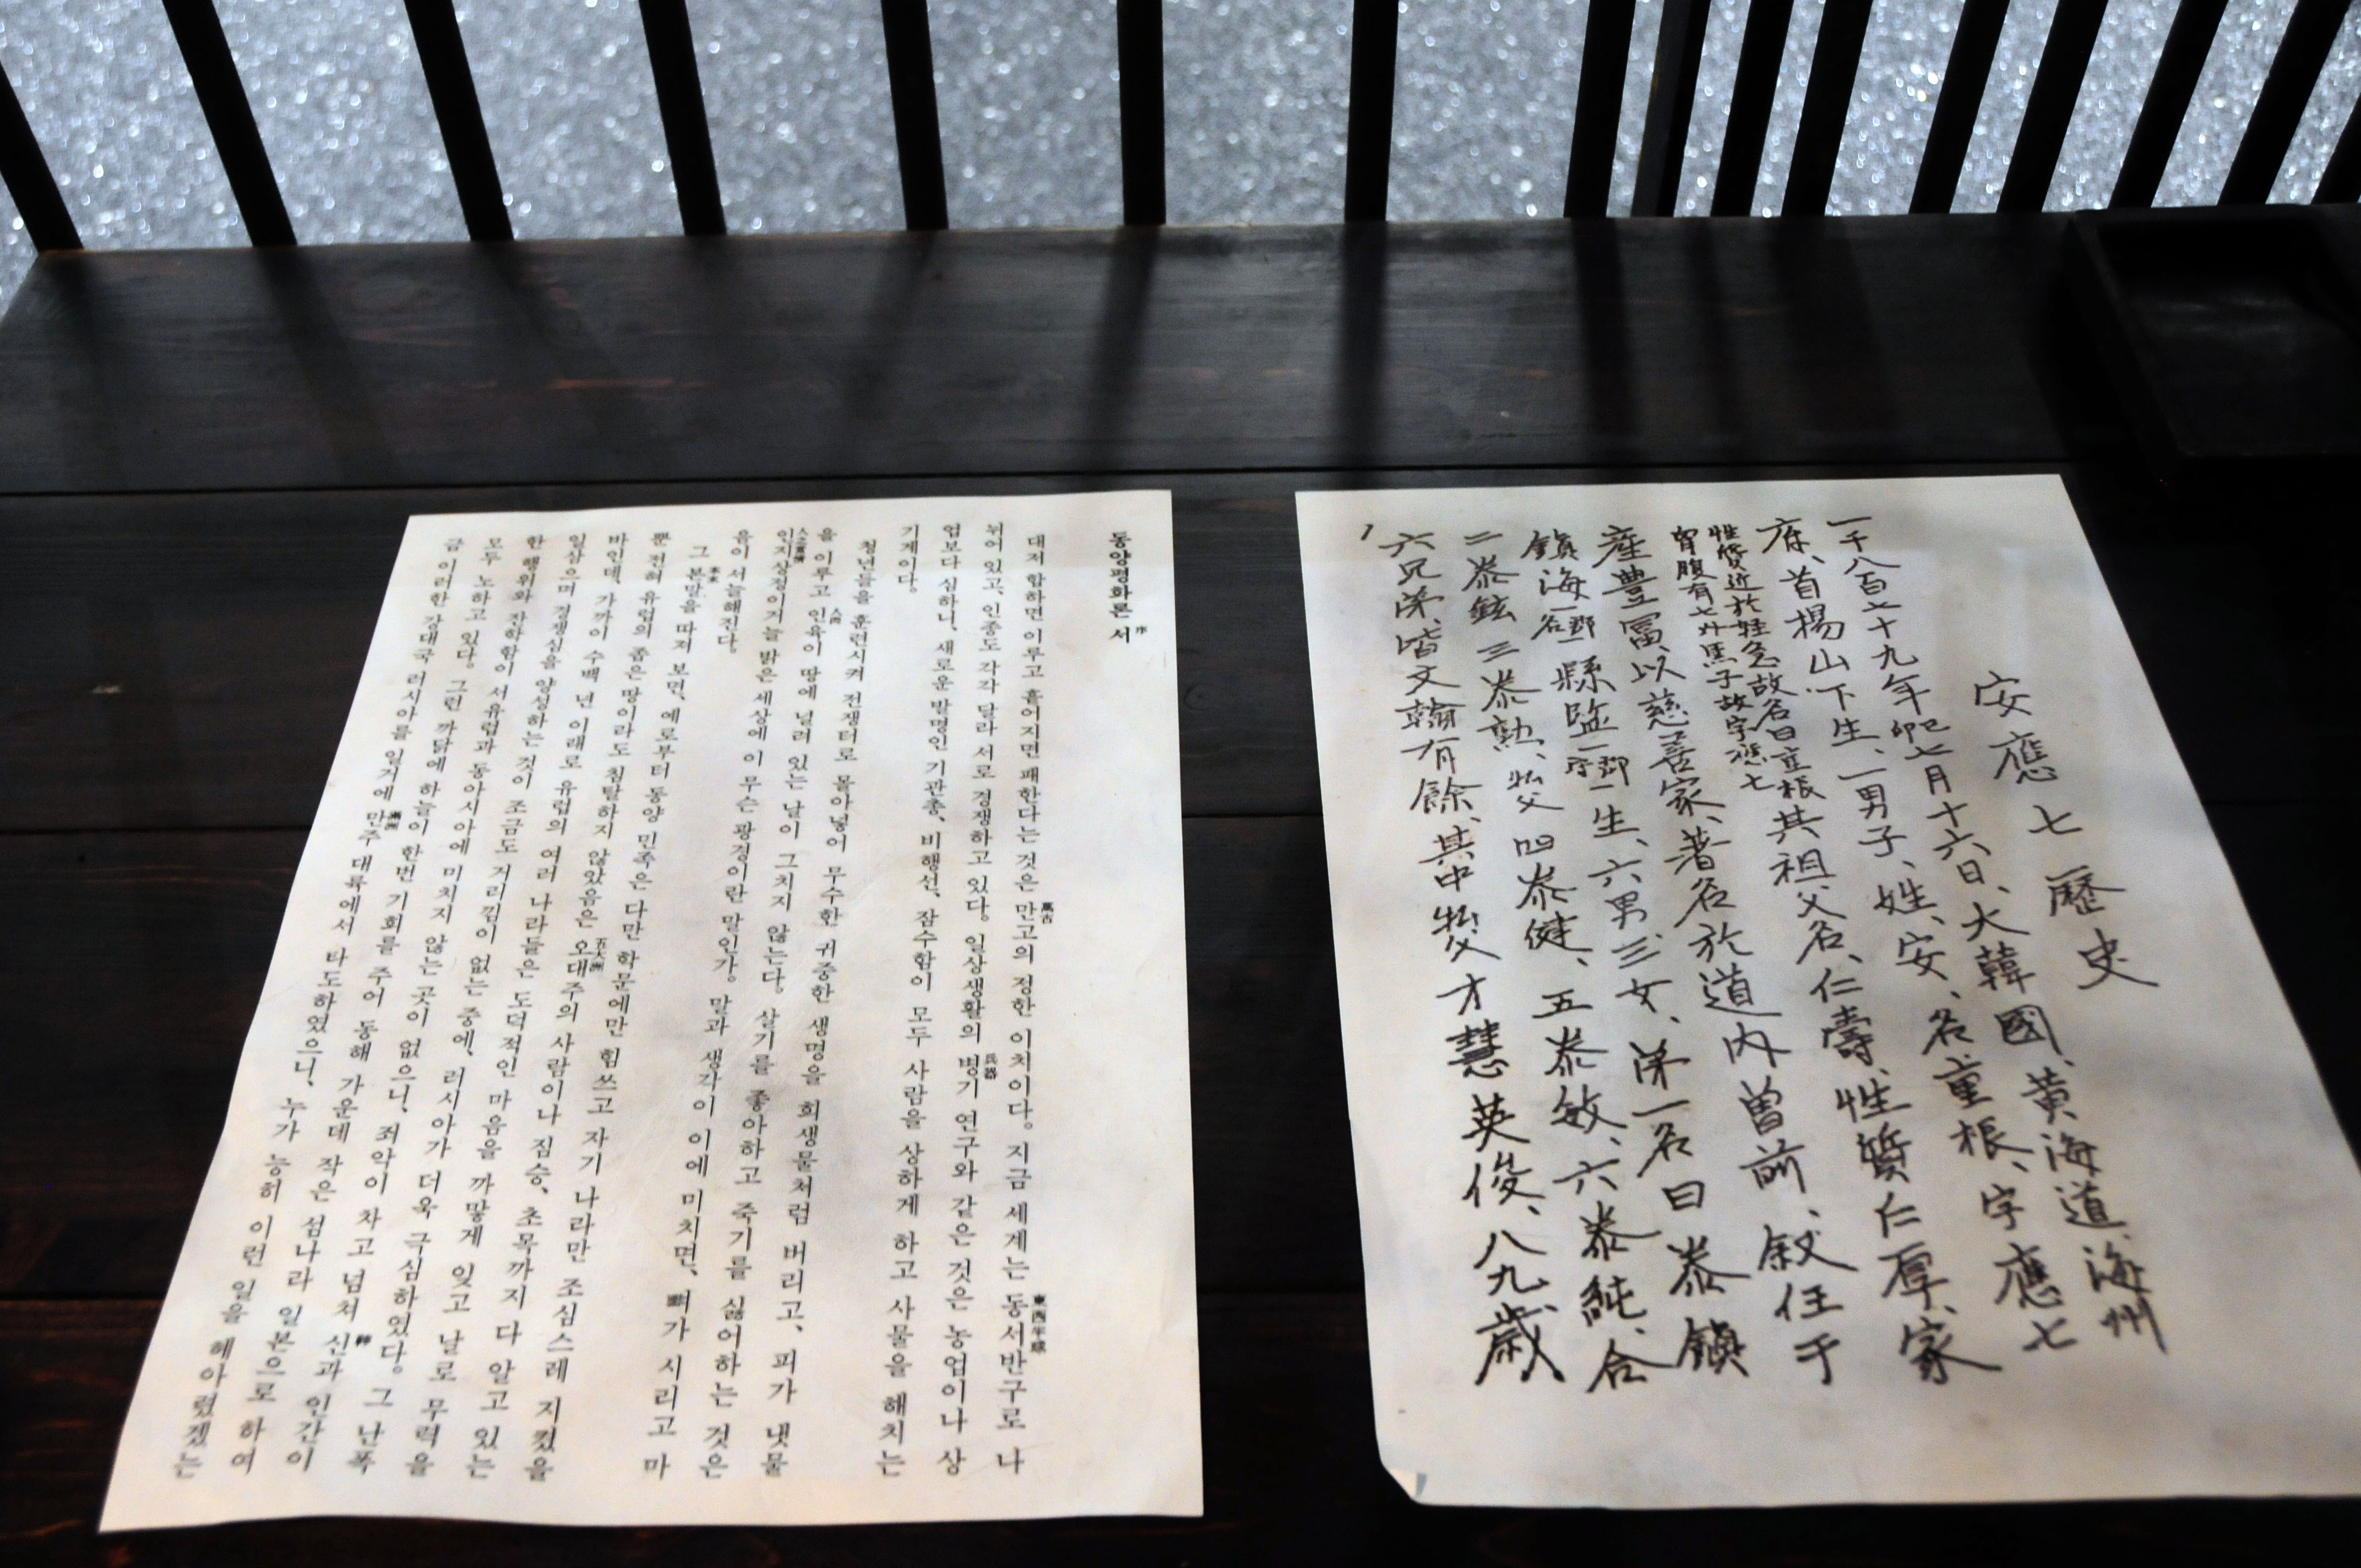 安應七歷史
一千八百七十九年己卯七月十六日、大韓國、黃海道、海州
府、首楊山下生、一男子、姓、安、名、重根、字、應七
性質近於輕急故名曰重根
胸腹有七介黑子故字應七
其祖父名、仁壽、性質仁厚、家
產豐富、以慈善家、著名於道內曾前、敘任于
鎭海縣監生、六男、三女、第一名曰泰鎭
二泰鉉三泰勳、父四泰健、五泰敏、六泰純、合
六兄弟、皆文翰有餘、其中父才慧英俊、八九歲
1
동양평화론 서序
대저 합하면 이루고 흩어지면 패한다는 것은 만고萬古의 정한 이치이다. 지금 세계는 동서반구東西半球로 나
뉘어 있고, 인종도 각각 달라 서로 경쟁하고 있다. 일상생활의 병기兵器 연구와 같은 것은 농업이나 상
업보다 심하니, 새로운 발명인 기관총, 비행선, 잠수함이 모두 사람을 상하게 하고 사물을 해치는
기계이다.
청년들을 훈련시켜 전쟁터로 몰아넣어 무수한 귀중한 생명을 희생물처럼 버리고, 피가 냇물
을 이루고 인육人肉이 땅에 널려 있는 날이 그치지 않는다. 살기를 좋아하고 죽기를 싫어하는 것은
인지상정人之常情이거늘 밝은 세상에 이 무슨 광경이란 말인가. 말과 생각이 이에 미치면, 뼈가 시리고 마
음이 서늘해진다.
그 본말本末을 따져 보면, 예로부터 동양 민족은 다만 학문에만 힘쓰고 자기 나라만 조심스레 지켰을
뿐 전혀 유럽의 좁은 땅이라도 침탈하지 않았음은 오대주五大洲의 사람이나 짐승, 초목까지 다 알고 있는
바인데, 가까이 수백 년 이래로 유럽의 여러 나라들은 도덕적인 마음을 까맣게 잊고 날로 무력을
일삼으며 경쟁심을 양성하는 것이 조금도 거리낌이 없는 중에, 러시아가 더욱 극심하였다. 그 난폭
한 행위와 잔학함이 서유럽과 동아시아에 미치지 않는 곳이 없으니, 죄악이 차고 넘쳐 신神과 인간이
모두 노하고 있다. 그런 까닭에 하늘이 한번 기회를 주어 동해 가운데 작은 섬나라 일본으로 하여
금 이러한 강대국 러시아를 일거에 만주滿洲 대륙에서 타도하였으니, 누가 능히 이런 일을 헤아렸겠는